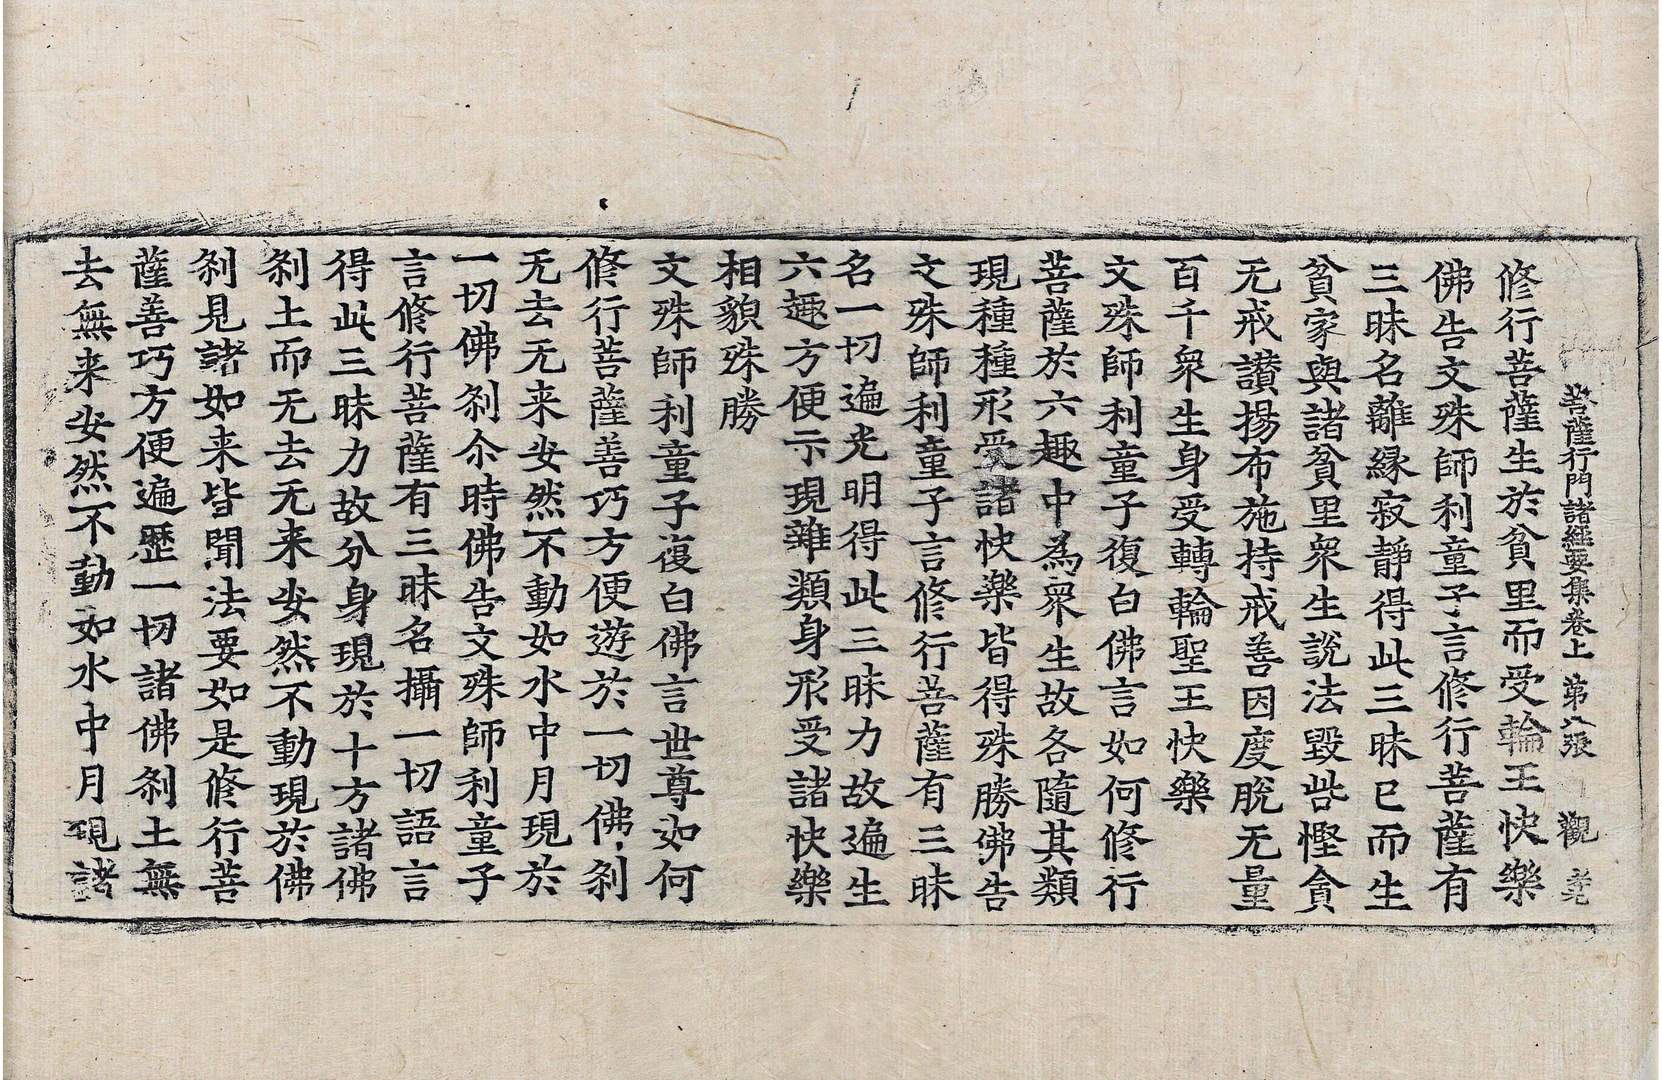 菩薩行門諸經要集卷上 第八張 觀
修行菩薩生於貧里而受輪王快樂
佛告文殊師利童子言修行菩薩有
三昧名離緣寂靜得此三昧已而生
貧家與諸貧里衆生說法毀呰慳貪
无戒讃揚布施持戒善因度脫无量
百千衆生身受轉輪聖王快樂
文殊師利童子復白佛言如何修行
菩薩於六趣中為衆生故各隨其類
現種種形受諸快樂皆得殊勝佛告
文殊師利童子言修行菩薩有三昧
名一切遍光明得此三昧力故遍生
六趣方便示現雜類身形受諸快樂
相貌殊勝
文殊師利童子復白佛言世尊如何
修行菩薩善巧方便遊於一切佛刹
无去无来安然不動如水中月現於
一切佛刹尒時佛告文殊師利童子
言修行菩薩有三昧名攝一切語言
得此三昧力故分身現於十方諸佛
刹土而无去无来安然不動現於佛
刹見諸如来皆聞法要如是修行菩
薩善巧方便遍歷一切諸佛刹土無
去無来安然不動如水中月現諸